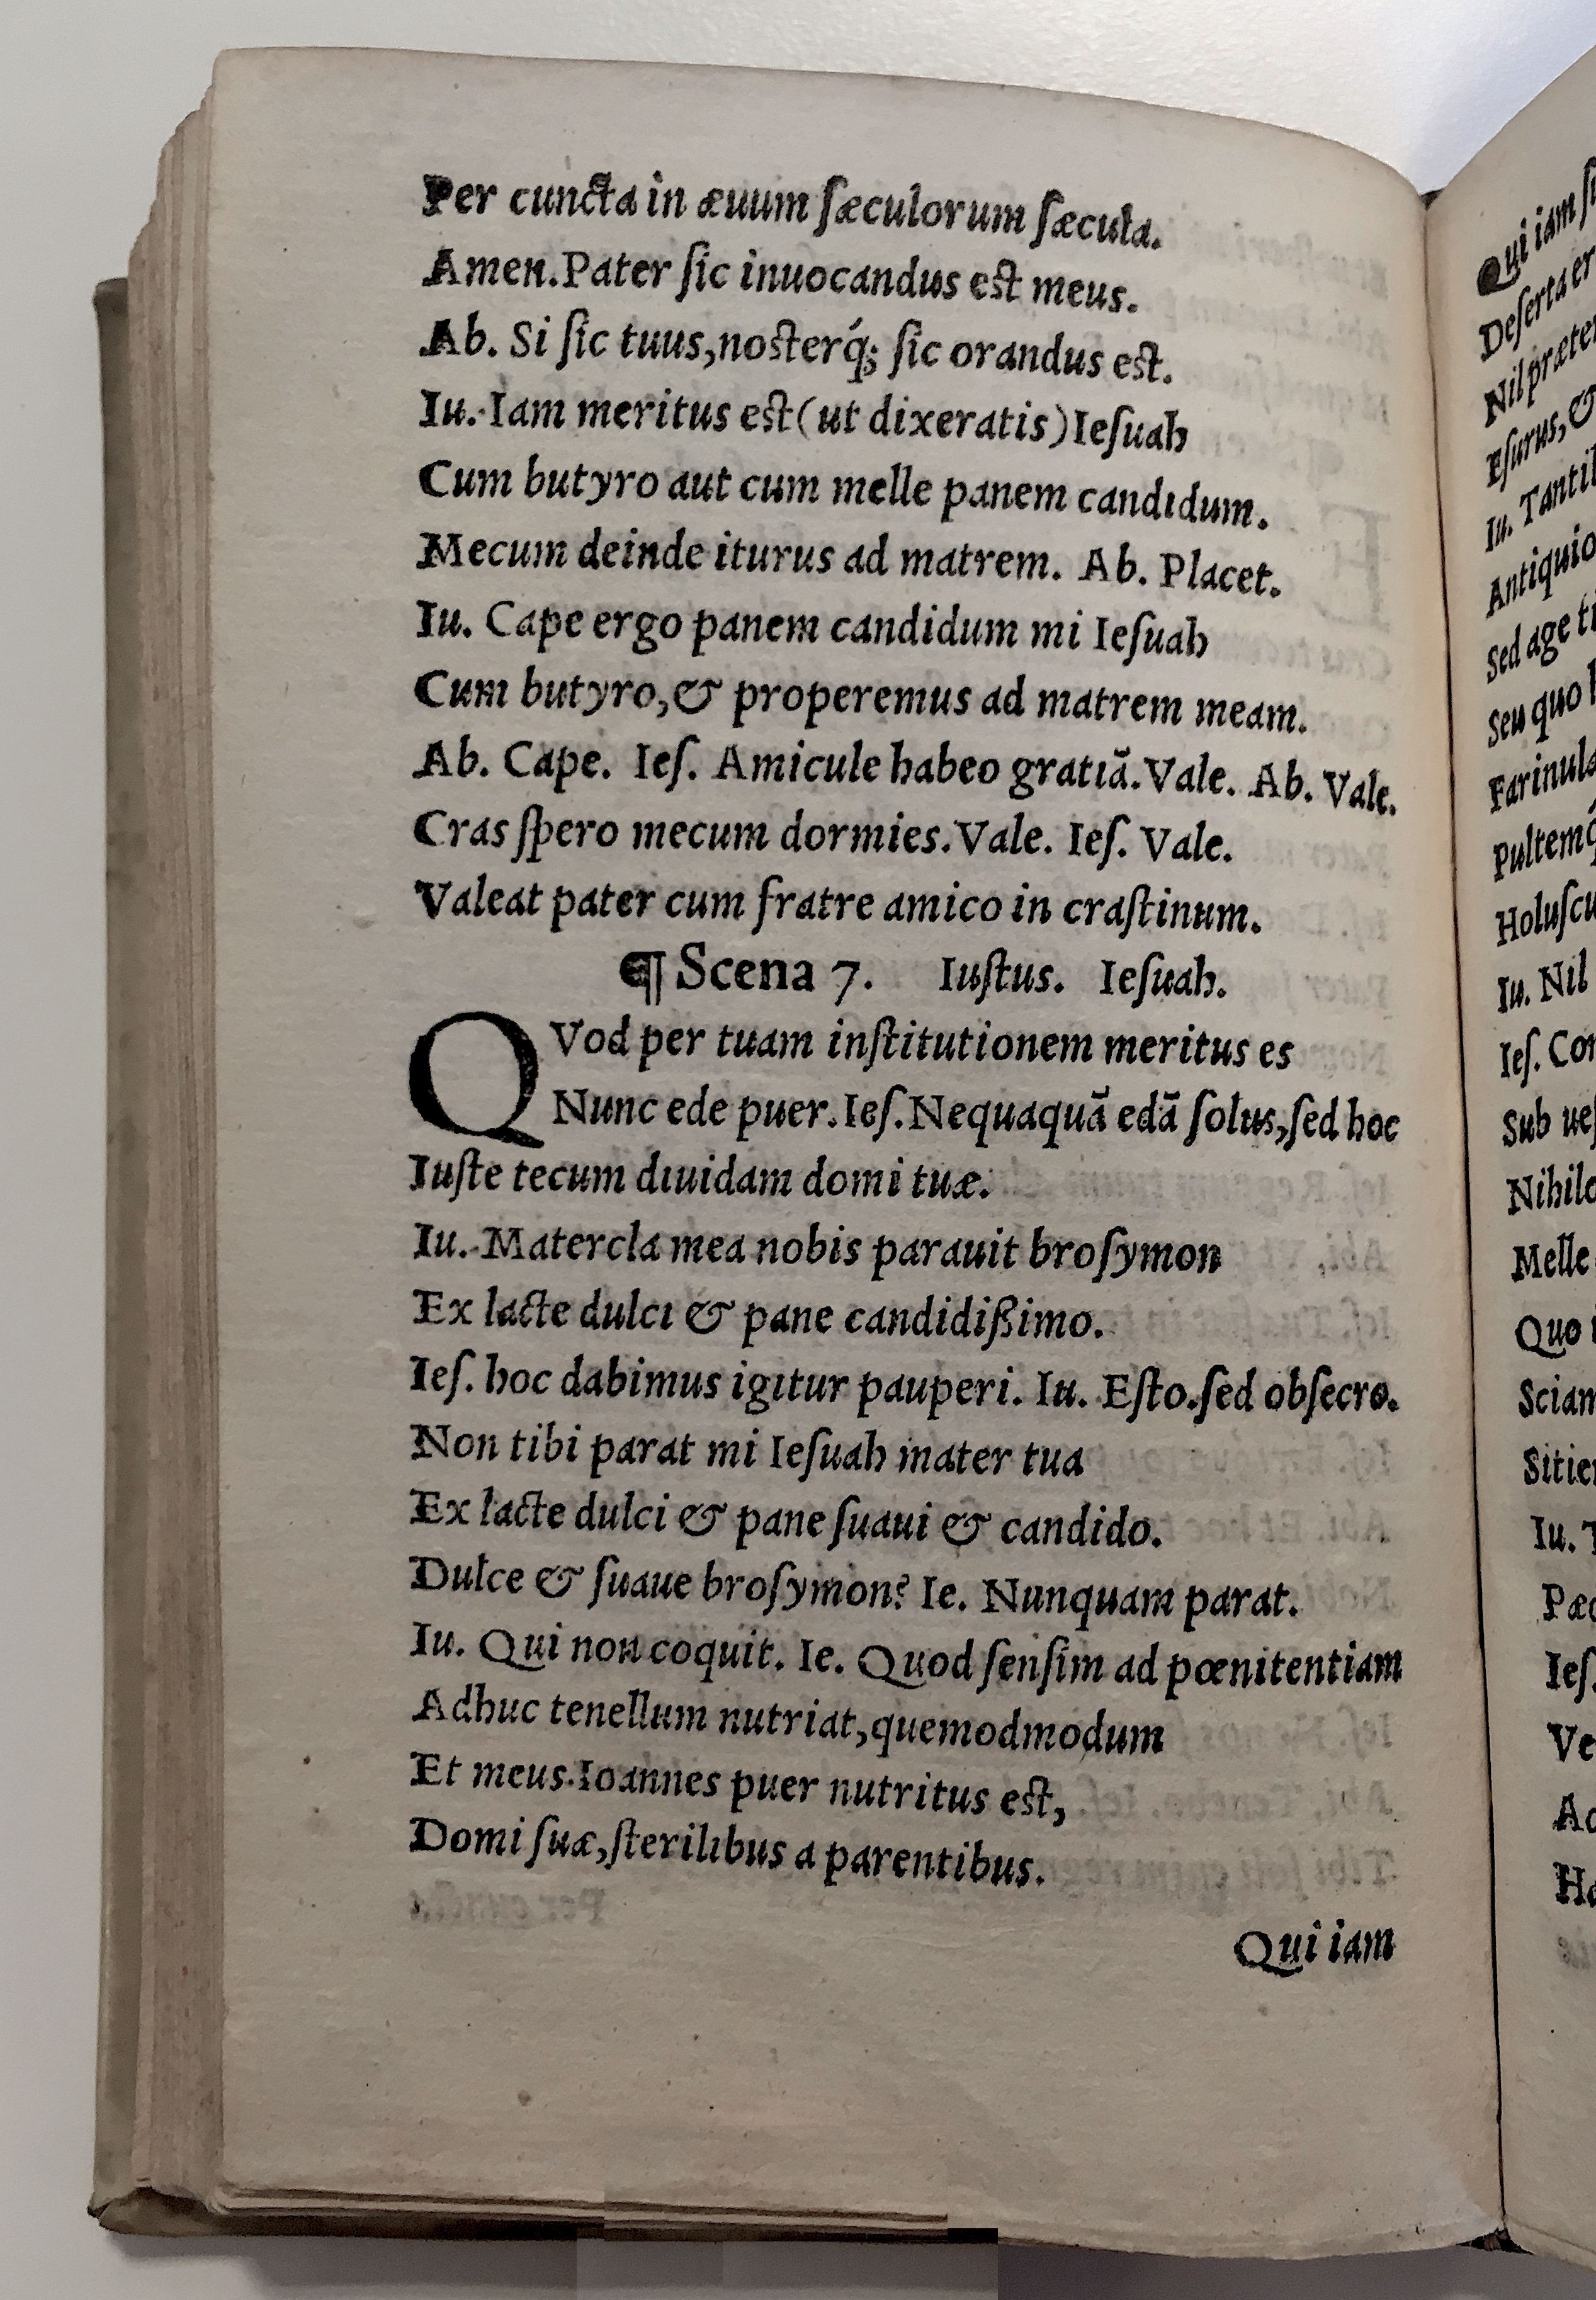 Per cuncta in æuum ſæculorum ſæcula.
Amen. Pater ſic inuocandus est meus.
Ab. Si ſic tuus, nosterq́; ſic orandus est.
Iu. Iam meritus est (ut dixeratis) Ieſuah
Cum butyro aut cum melle panem candidum.
Mecum deinde iturus ad matrem. Ab. Placet.
Iu. Cape ergo panem candidum mi Ieſuah
Cum butyro, & properemus ad matrem meam.
Ab. Cape. Ieſ. Amicule habeo gratiā. Vale. Ab. Vale.
Cras ſpero mecum dormies. Vale. Ieſ. Vale.
Valeat pater cum fratre amico in craſtinum.
¶ Scena 7. Iuſtus. Ieſuah.
QVod per tuam inſtitutionem meritus es
Nunc ede puer. Ieſ. Nequaquā edā ſolus, ſed hoc
Iuſte tecum diuidam domi tuæ.
Iu. Matercla mea nobis parauit broſymon
Ex lacte dulci & pane candidißimo.
Ieſ. hoc dabimus igitur pauperi. Iu. Eſto. ſed obſecro.
Non tibi parat mi Ieſuah mater tua
Ex lacte dulci & pane ſuaui & candido.
Dulce & ſuaue broſymon? Ie. Nunquam parat.
Iu. Qui non coquit. Ie. Quod ſenſim ad pœnitentiam
Adhuc tenellum nutriat, quemodmodum
Et meus Ioannes puer nutritus est,
Domi ſuæ, ſterilibus a parentibus.
Qui iam
Qui iam
Deſerta
Nil præter
Eſurus, &
Iu.
Antiquio
Sed age
Seu quo
Farinula
Pultemq́
Holuſcu
Iu. Nil
Ieſ. Con
Sub ueſ
Nihilo
Melle
Quo
Sciam
Sitien
Iu.
Pæd
Ieſ.
Ve
Ad